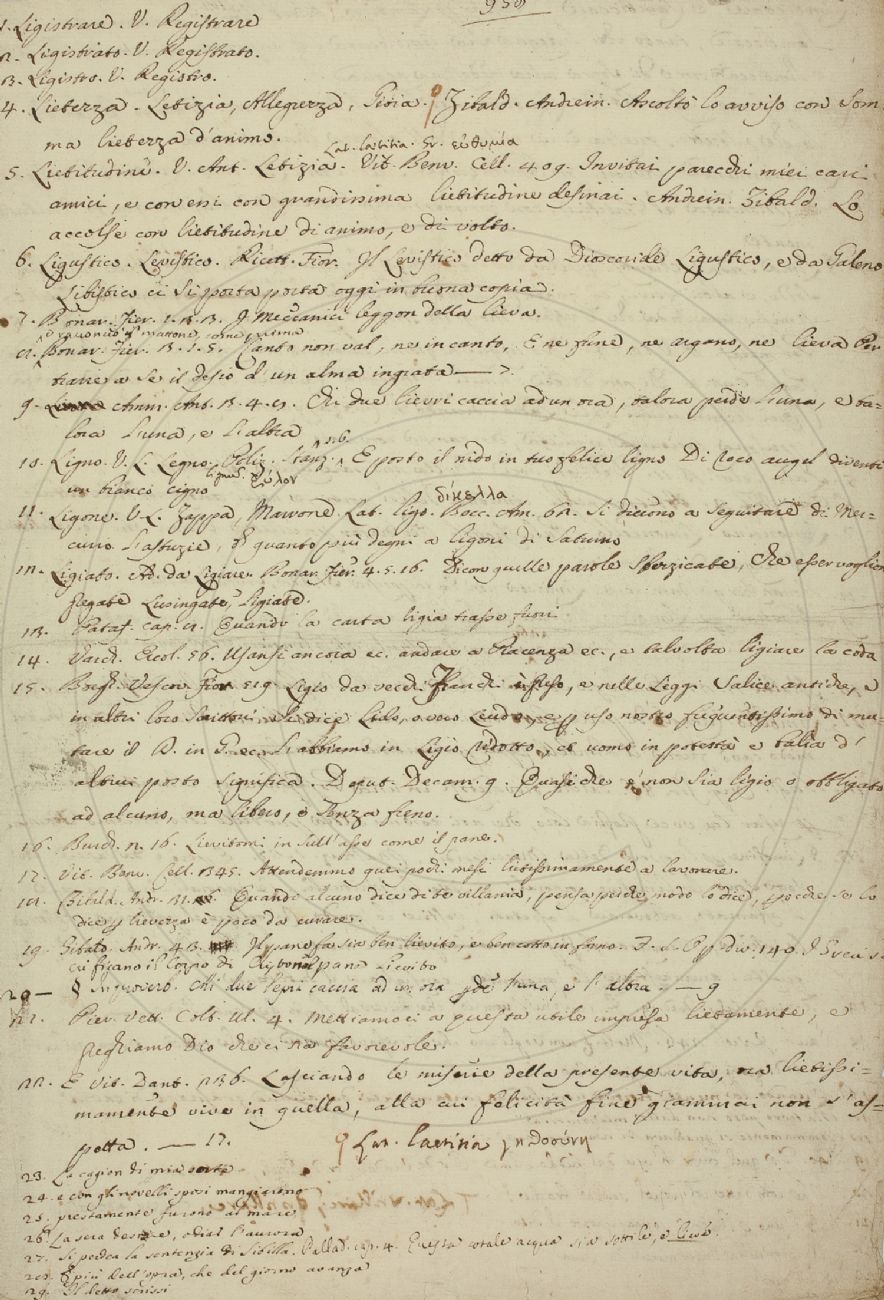 950
1. Ligistrare. V. Registrare
2. Ligistrato. V. Registrato.
3. Ligistro. V. Registro.
4. Lietezza. Letizia, Allegrezza, Gioia. Zibald. Andrein. Ascoltò lo avviso con som-
ma lietezza d'animo.
Lat. laetitia. Gr. εὐθυμία
5. Lietitudine. V. Ant. Letizia. Vit. Benv. Cell. 409. Invitai parecchi miei cari
amici, e con essi con grandissima lietitudine desinai. Andrein. Zibald. Lo
accolse con lietitudine di animo, e di volto.
6. Ligustico. Levistico. Ricett. Fior. Il Levistico detto da Dioscoride Ligustico, e da Galeno
Libistico ci si porta oggi in buona copia.
7. Bonar. Fier. I Meccanici leggon della lieva.
Bonar. Fier. 3. 1. 5. Canto non val, ne incanto, E ne fune, ne argano, ne lieva Per
trarre a se il desio d'un alma ingrata — 7.
9. Amm. Ant. Chi due lievri caccia ad un ora, talora perde l'una, e ta-
lora l'una, e l'altra
10. Ligno. V. L. Legno. Poliz. Stanz. E posto il nido in tuo felice ligno Di roco augel diventi
un bianco cigno
ξύλον
δίκελλα
11. Ligone. V. L. Zappa, Marrone. Lat. ligo. Bocc. Am. Si dierono a seguitare di Mer-
curio l'astuzie, quanto più degni a ligoni di Saturno
12. Ligiato. Ad. da Ligiare. Bonar. Fier. 4. 5. 16. Dicon quelle parole Che esser voglion
fregate Lusingate, ligiate.
13. Pataf. cap. Quando la carta ligia trasse fuori
14. Varch. Ercol. 56. Usansi ancora ec. andare a Piacenza ec., e talvolta ligiare la coda
15. Borgh. Vescov. Fior. 519. Ligio da vecchi Franchi e nelle Leggi Salice antiche, e
in altri loro Scrittori si dice uso nostro frequentissimo di mu-
tare il D. in G. ec. l'abbiamo in Ligio ridotto, et uomo in potestà e balìa d'
altrui posto significa. Deput. Decam. 9. Quasi che e' non sia ligio o obbligato
ad alcuno, ma libero, e senza freno.
16. Burch. Lievitomi in sull'asse come il pane.
17. Vit. Benv. Cell. Attendemmo quei pochi mesi lietissimamente a lavorare.
Zibald. Andr. Quando alcuno dice di te villania, pensa perche modo lo dice, perche se lo
dice lievezza è poco da curare.
19. Zibald. Andr. 43. Il pane fa sia ben lievito, e ben cotto in forno.
il Corpo di pane Lievito
20 — § In proverb. Chi due lepri caccia ad un ora perde l'una, e l'altra. — 9
Pier. Vett. Colt. Ul. 4. Mettiamoci a questa utile impresa lietamente, e
preghiamo Dio che ci sia favorevole.
22. E Vit. Dant. Lasciando le miserie della presente vita, ora lietissi-
mamente vive in quella, alla cui felicità fine giammai non s'as-
petta. — 17.
Lat. laetitia γηθοσύνη
23. La cagion di mia sorte
24. e con gli novelli sposi mangiarono
25. prestamente furono al mare
26. La sera desire, odia l'aurora
27. Si perdea la sentenzia di Sibilla. Pallad. cap. 4. Questa cotale acqua sia sottile, e lieve
28. E più dell'opra, che del giorno avanza
29. Il detto scrissi